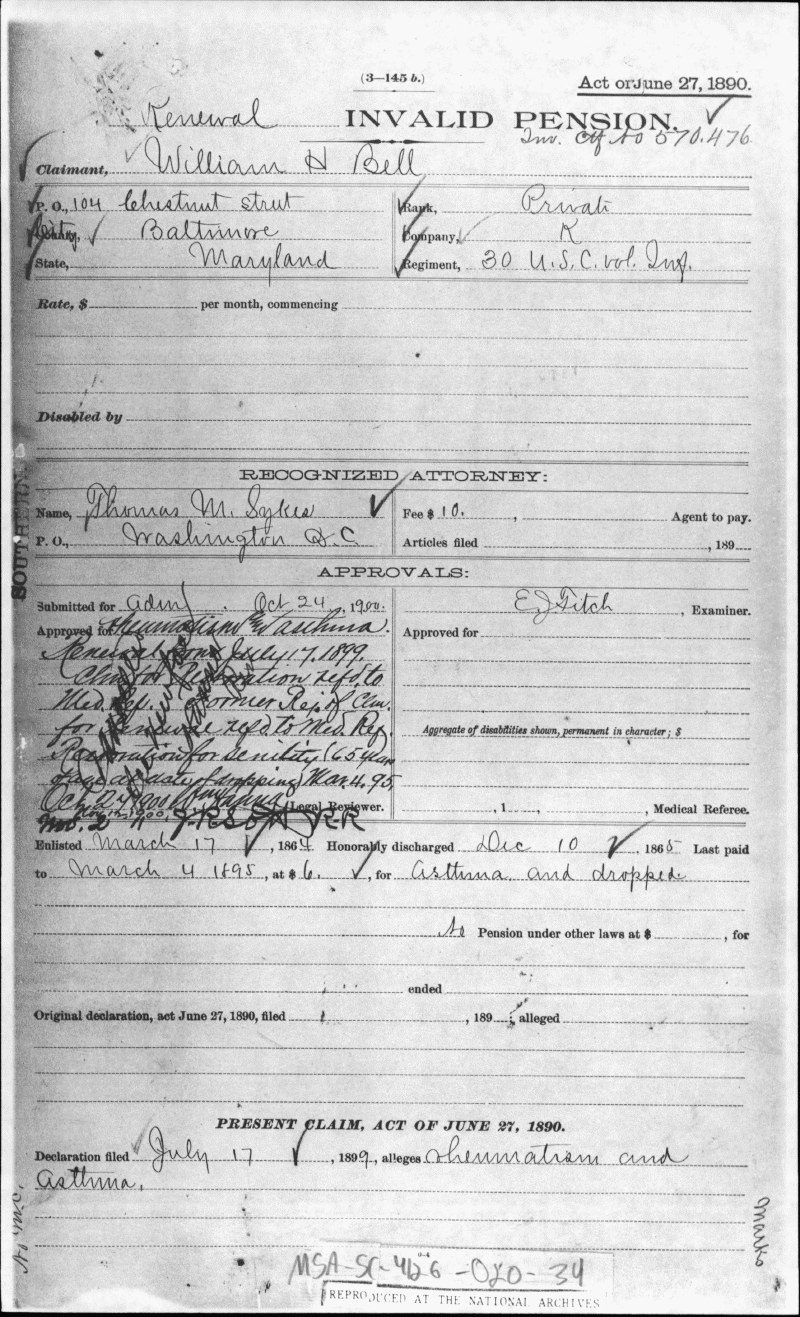 (3—145 b.)
Act of June 27, 1890.
Renewal INVALID PENSION.
Inv. Ctf No 570.476
Claimant, William H Bell
P. O., 104 Chestnut Street
Rank, Private
City, Baltimore
Company, K
State, Maryland
Regiment, 30 U.S.C. vol. Inf.
Rate, $ per month, commencing
Disabled by
SOUTHERN
RECOGNIZED ATTORNEY:
Name, Thomas M. Sykes
Fee $ 10. , Agent to pay.
P. O., Washington D.C.
Articles filed , 189
APPROVALS:
Submitted for adm . Oct 24 , 1900.
E J Fitch , Examiner.
Approved for rheumatism & asthma.
Approved for
Renewal from July 17. 1899.
Claim for Restoration refd. to
Med. Rep. Former Rej. of Clm.
for renewal refd. to Med. Ref.
Aggregate of disabilities shown, permanent in character; $
Restoration for senility (65 years
of age at date of dropping) Mar. 4. 95.
Oct 24 1900 Legal Reviewer.
, 1 , , Medical Referee.
Nov. 2
Enlisted March 17 , 1864 Honorably discharged Dec 10 , 1865 Last paid
to March 4 1895 , at $ 6. , for Asthma and dropped.
No Pension under other laws at $ , for
ended
Original declaration, act June 27, 1890, filed , 189 ; alleged
PRESENT CLAIM, ACT OF JUNE 27, 1890.
Declaration filed July 17 , 1899, alleges rheumatism and
Asthma.
No mc.
Marks
MSA-SC-4126-020-34
REPRODUCED AT THE NATIONAL ARCHIVES